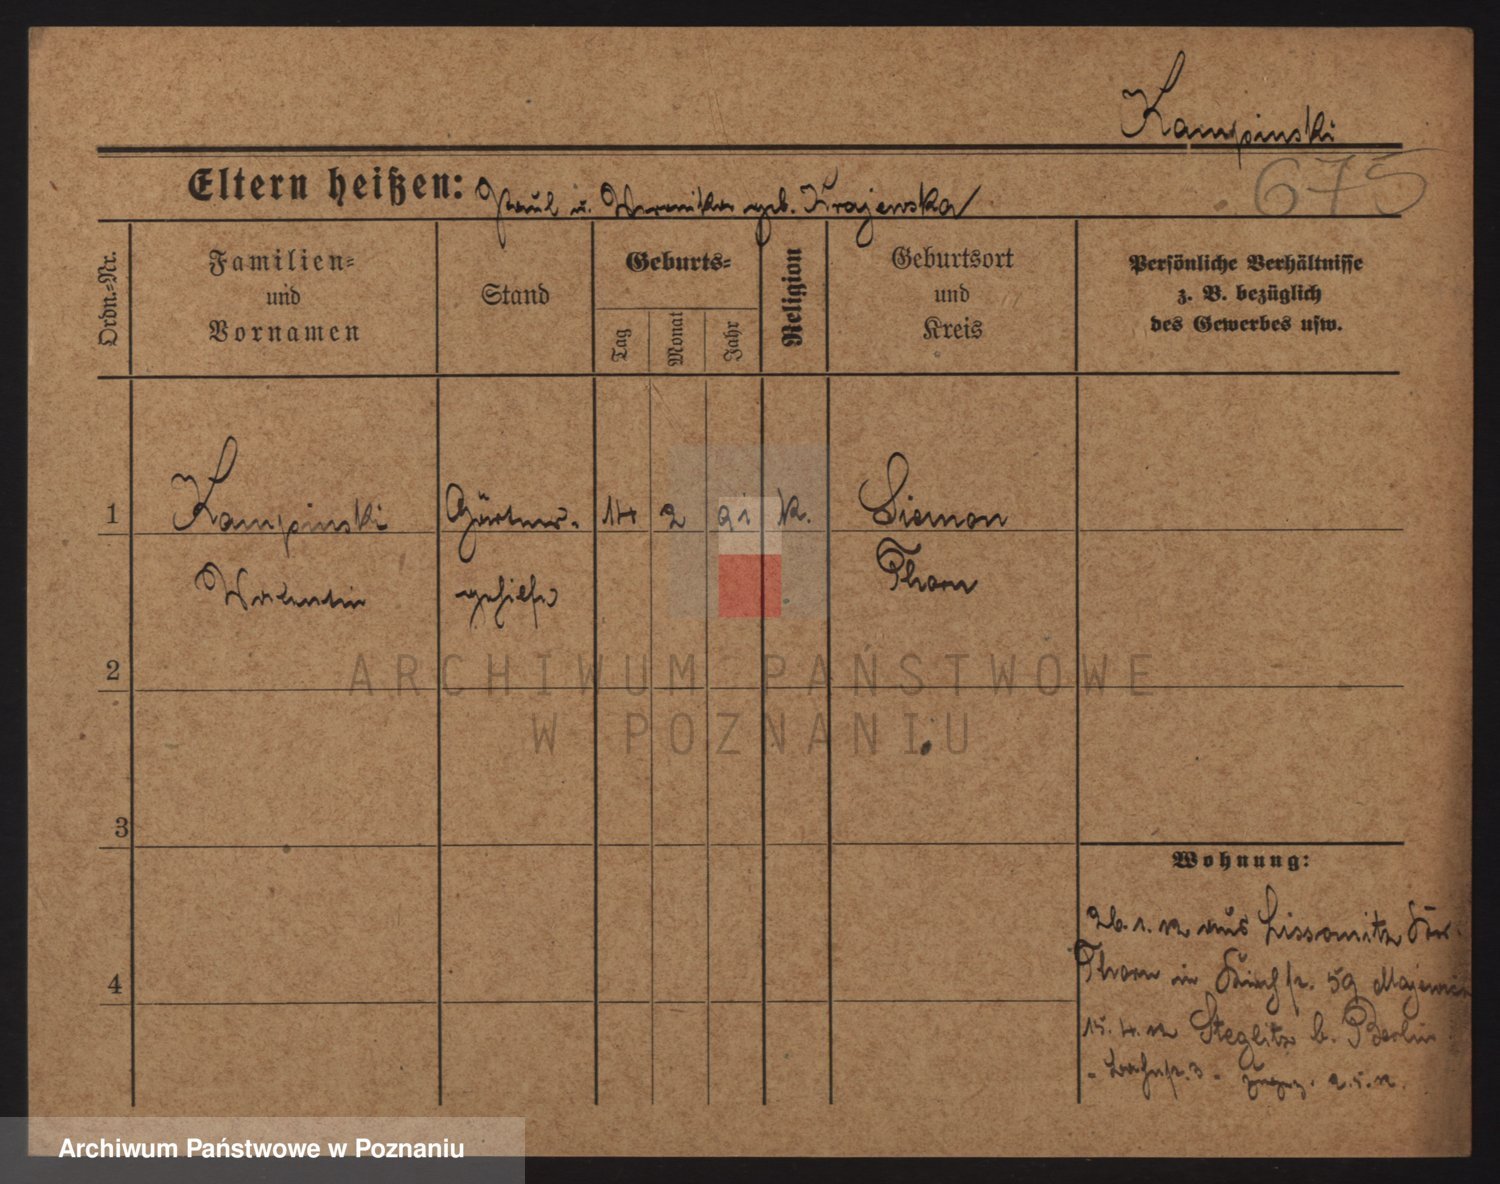 Kampinski
675
Eltern heißen: Paul u. Veronika geb. Krajewska
Ordn.-Nr.
Familien-
und
Vornamen
Stand
Geburts-
Tag
Monat
Jahr
Religion
Geburtsort
und
Kreis
Persönliche Verhältnisse
z. B. bezüglich
des Gewerbes usw.
1 Kampinski Gärtner- 14 2 91 k. Siemon
Valentin gehilfe Thorn
2
ARCHIWUM PAŃSTWOWE
W POZNANIU
3
Wohnung:
26.1.12 aus Lissomitz
4
Thorn in 59 Majewicz
15.4.12 Steglitz b. Berlin
2.5.12.
Archiwum Państwowe w Poznaniu